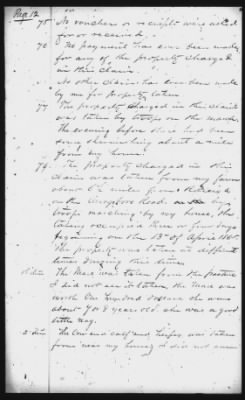 Pag 12
75 No vouchers or receipts were asked
for or received.
76 No payment has ever been made
for any of the property charged
in this claim.
No other claim has ever been made
by me for property taken
77 The property charged in this claim
was taken by troops on the march
the evening before there had been
some skirmishing about a mile
from my house.
78 The property charged in this
claim was taken from my farm
about 6½ miles from
on the Road
troops marching by my house, the
taking occupied three or four days
beginning on the of April 1865
The property was taken at different
times during this time.
1 item The Mare was taken from the pasture
I did not see it taken, the Mare was
worth One Hundred Dollars she was
about 7 or 8 years old. she was a good
mag.
2 item The Cow and calf and heifer was taken
from near my house, I did not